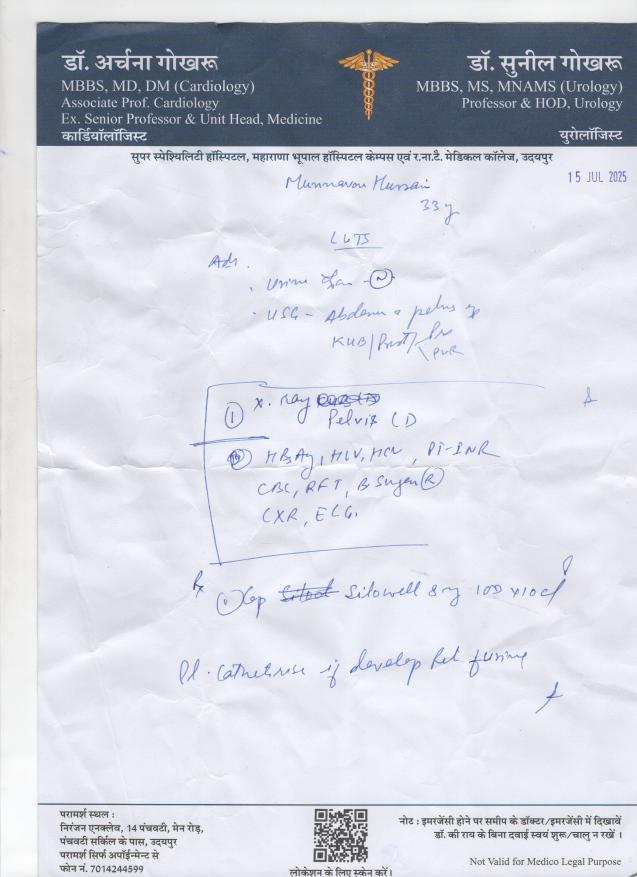 डॉ. अर्चना गोखरू
MBBS, MD, DM (Cardiology)
Associate Prof. Cardiology
Ex. Senior Professor & Unit Head, Medicine
कार्डियॉलॉजिस्ट
डॉ. सुनील गोखरू
MBBS, MS, MNAMS (Urology)
Professor & HOD, Urology
युरोलॉजिस्ट
सुपर स्पेश्यिलिटी हॉस्पिटल, महाराणा भूपाल हॉस्पिटल केम्पस एवं र.ना.टै. मेडिकल कॉलेज, उदयपुर
15 JUL 2025
Hussain
33 y
LUTS
Adv.
Urine
USG - Abdomen & pelvis
KUB/Prost/
PVR
1 X. ray
Pelvis
HBsAg, HIV, HCV, PT-INR
CBC, RFT, B. Sugar (R)
CXR, ECG.
Rx
Cap Silowell 8 mg 10D
Pl. Catheterise if develop Ret of urine
परामर्श स्थल :
निरंजन एनक्लेव, 14 पंचवटी, मेन रोड़,
पंचवटी सर्किल के पास, उदयपुर
परामर्श सिर्फ अपॉईन्मेन्ट से
फोन नं. 7014244599
लोकेशन के लिए स्केन करें।
नोट : इमरजेंसी होने पर समीप के डॉक्टर/इमरजेंसी में दिखावें
डॉ. की राय के बिना दवाई स्वयं शुरू/चालु न रखें ।
Not Valid for Medico Legal Purpose